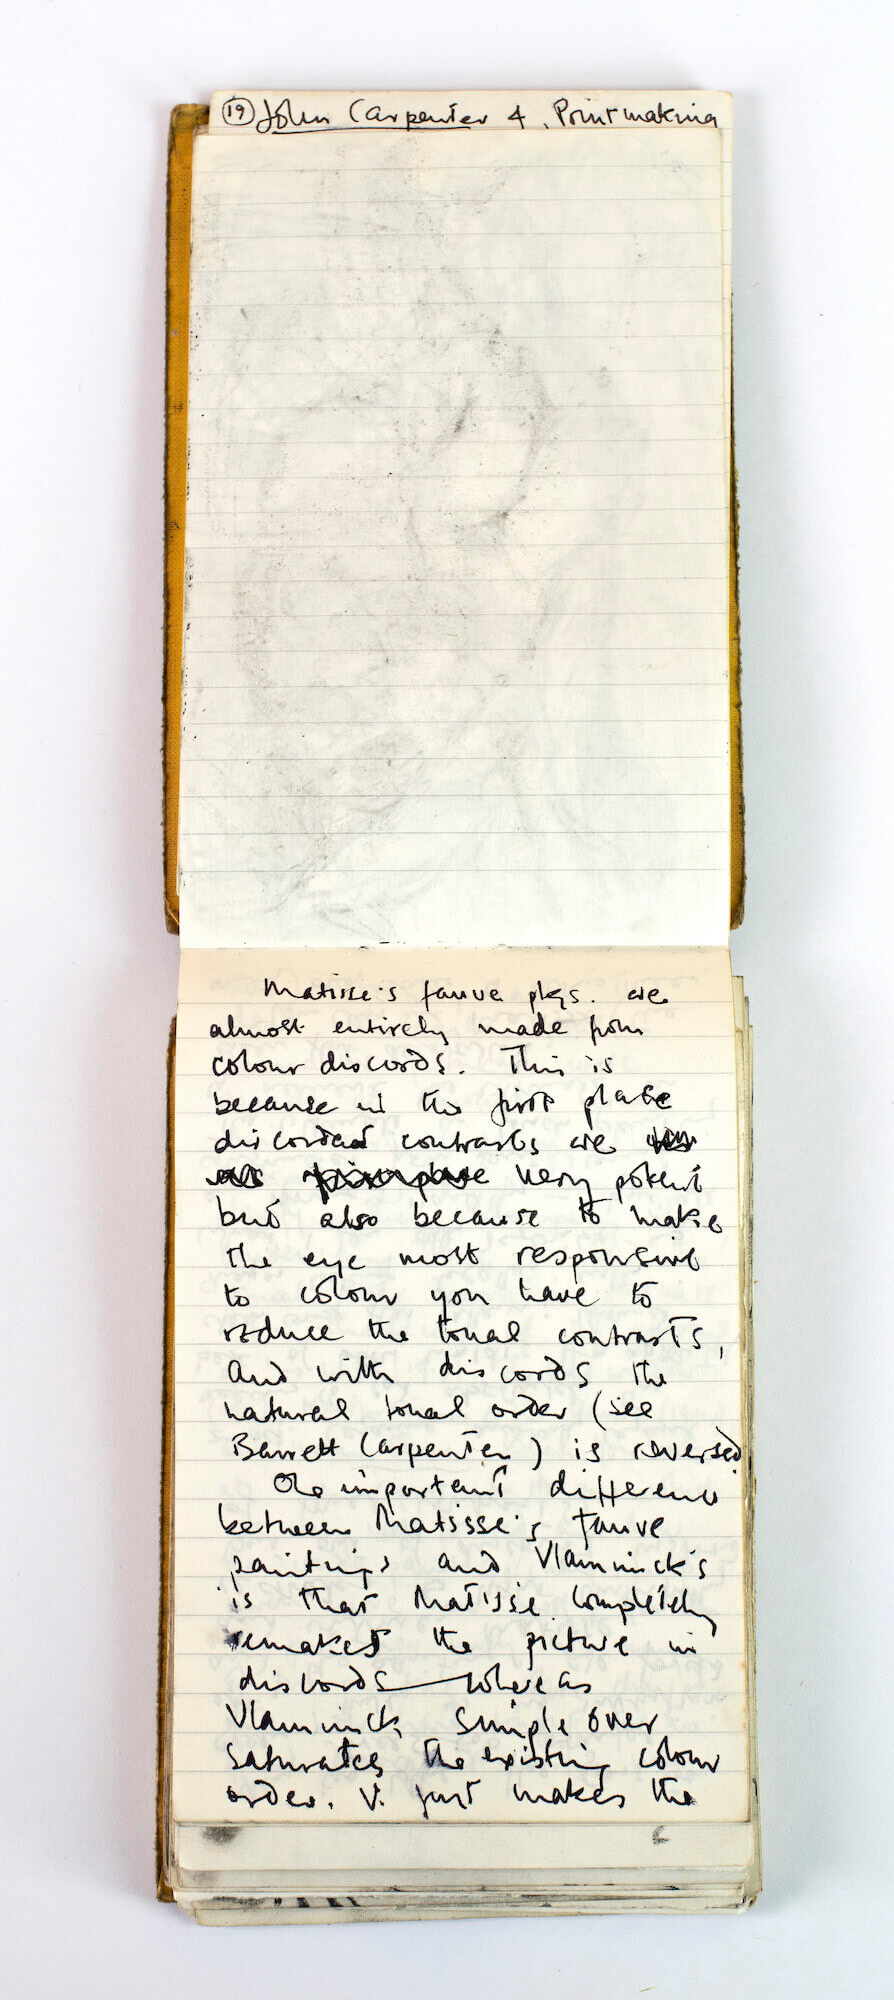 (19) John Carpenter & Printmaking
Matisse's fauve ptgs. are
almost entirely made from
colour discords. This is
because in the first place
discorded contrasts are
very potent
but also because to make
the eye most responsive
to colour you have to
reduce the tonal contrasts,
and with discords the
natural tonal order (see
Barrett Carpenter) is reversed.
One important difference
between Matisse's fauve
paintings and Vlaminck's
is that Matisse completely
remakes the picture in
discords whereas
Vlaminck simple over
saturates the existing colour
order. V. just makes the